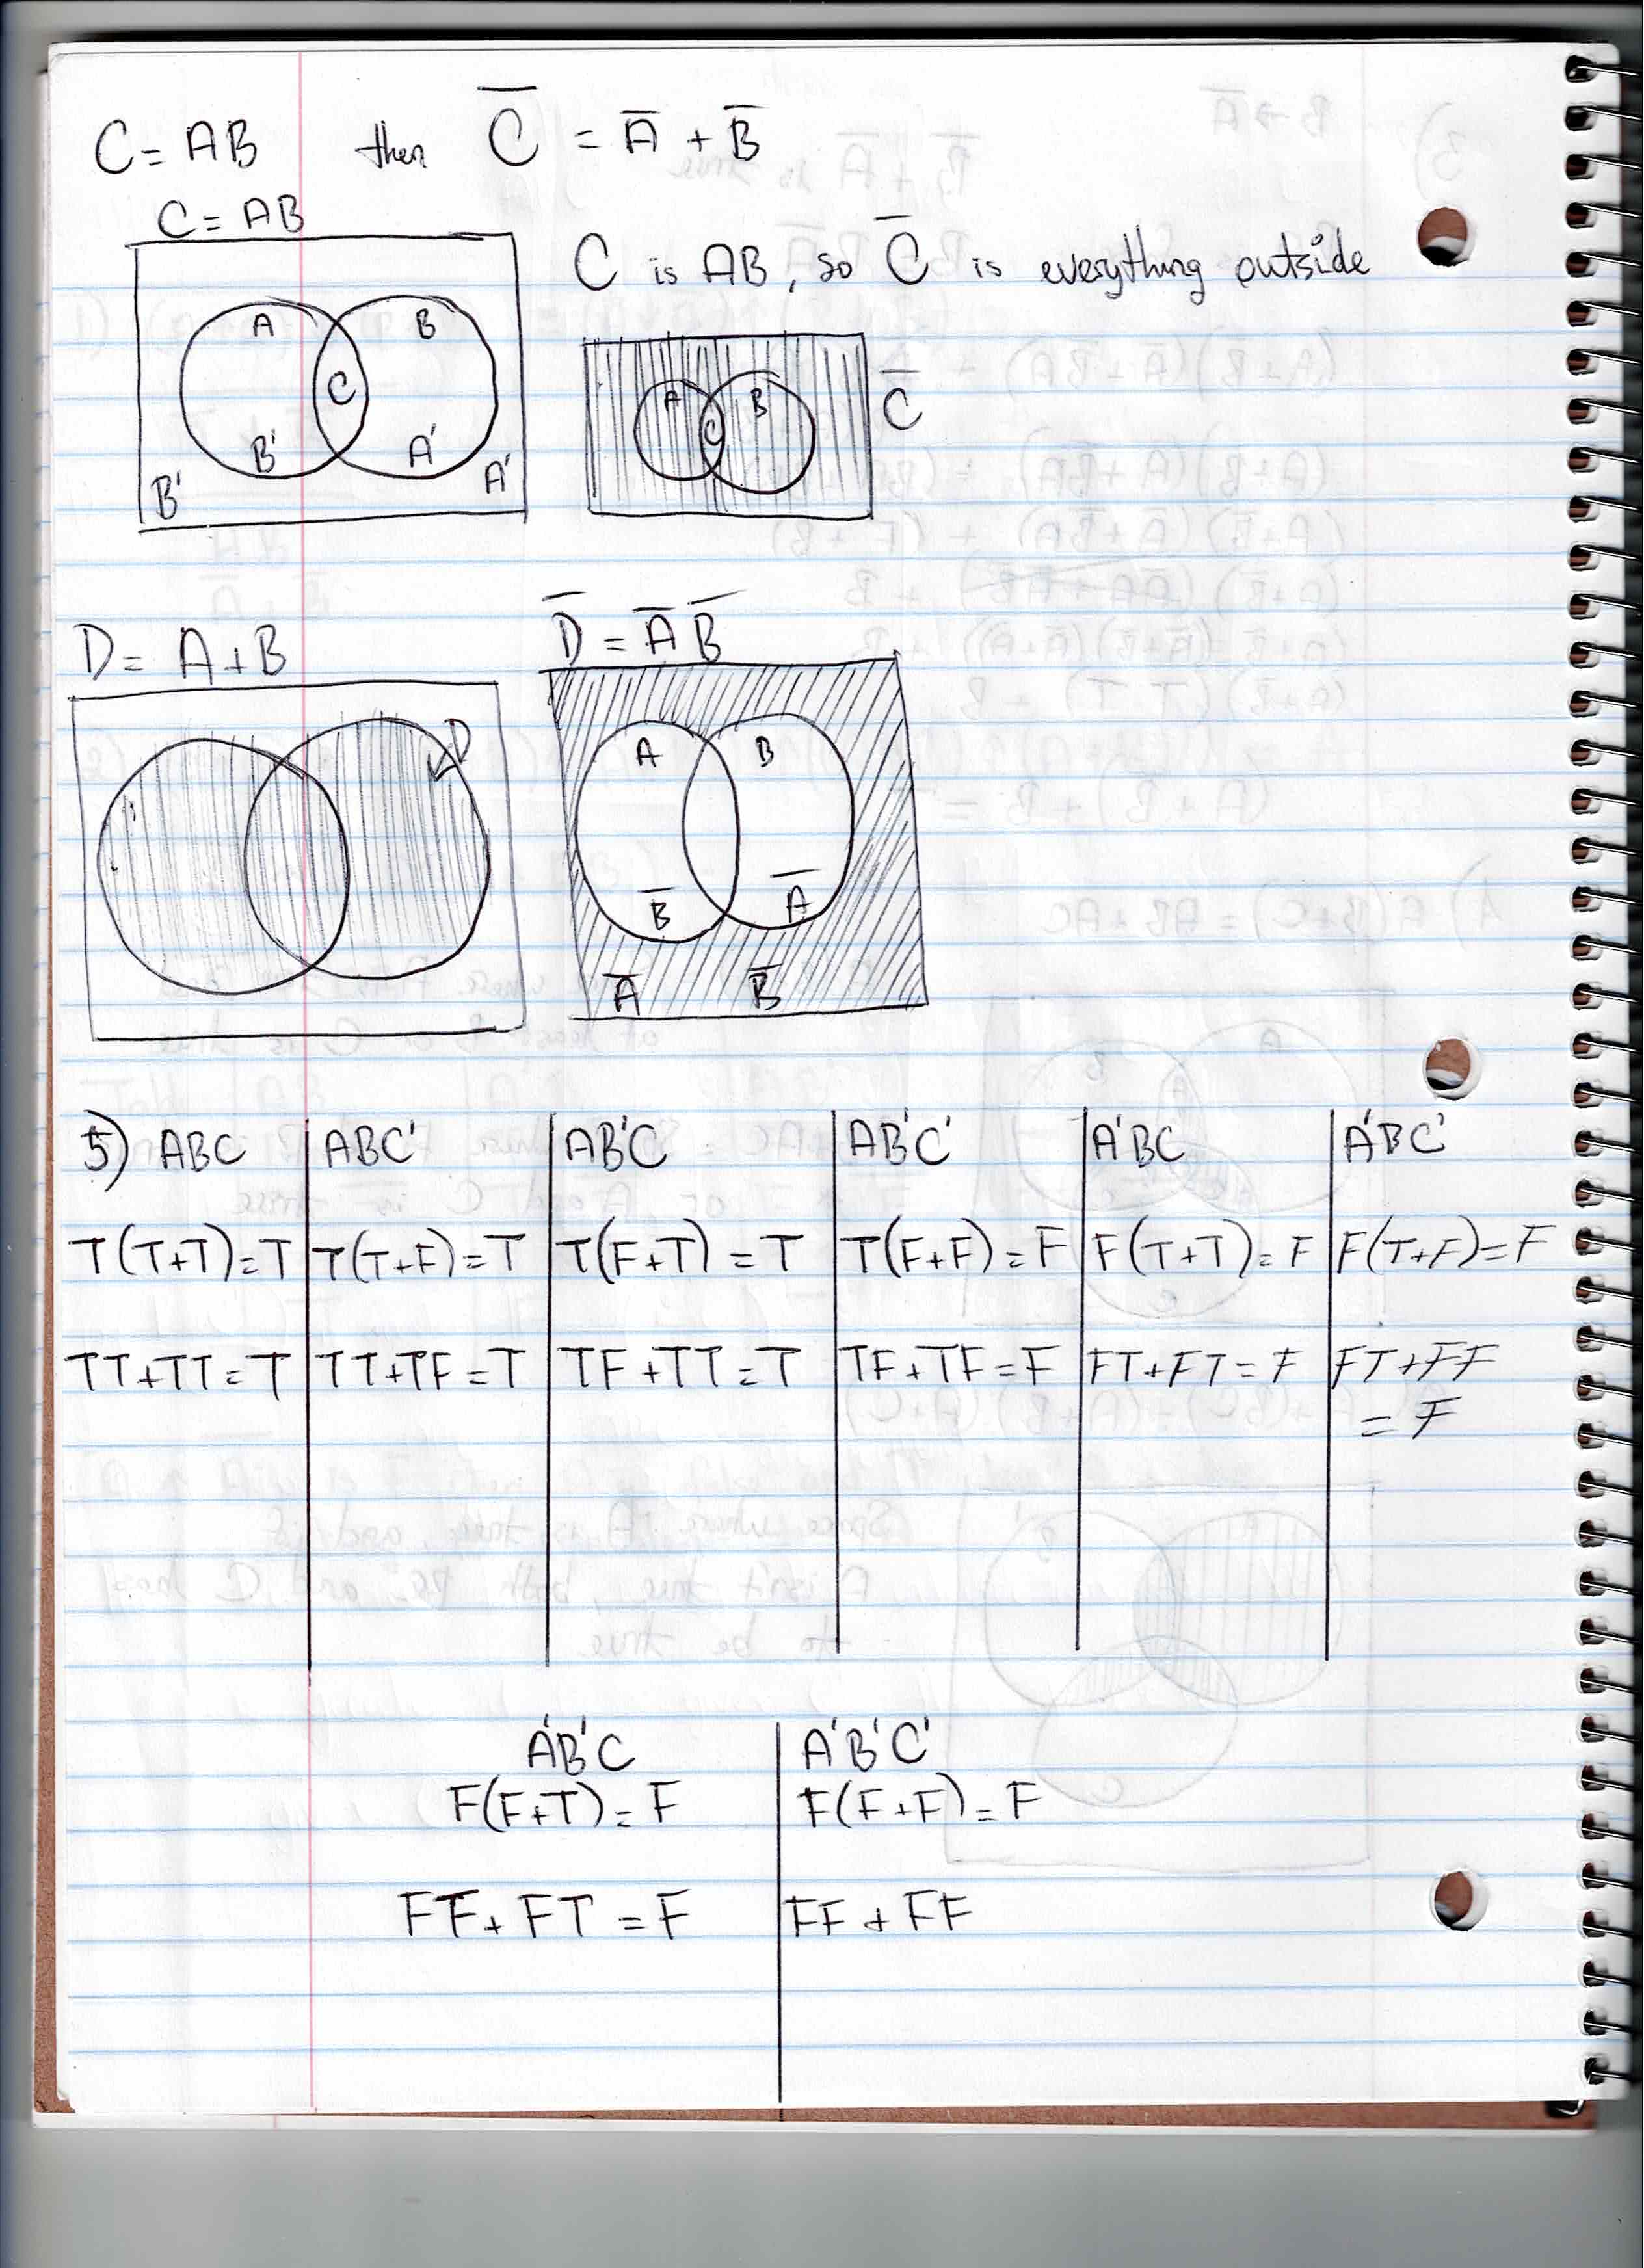 C = AB then C̅ = A̅ + B̅
C = AB
C is AB, so C̅ is everything outside
A B
C
B' A'
B' A'
A B
C
C̅
D = A+B
D
D̅ = A̅ B̅
A B
B̅ A̅
A̅ B̅
5) ABC | ABC' | AB'C | AB'C' | A'BC | A'BC'
T(T+T)=T | T(T+F)=T | T(F+T)=T | T(F+F)=F | F(T+T)=F | F(T+F)=F
TT+TT=T | TT+TF=T | TF+TT=T | TF+TF=F | FT+FT=F | FT+FF
= F
A'B'C | A'B'C'
F(F+T)=F | F(F+F)=F
FF+FT=F | FF+FF